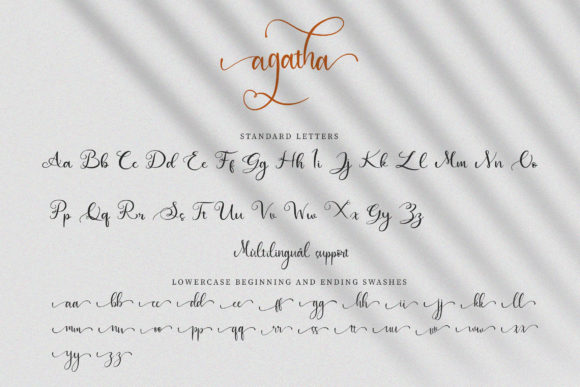 agatha
STANDARD LETTERS
Aa Bb Cc Dd Ee Ff Gg Hh Ii Jj Kk Ll Mm Nn Oo
Pp Qq Rr Ss Tt Uu Vv Ww Xx Yy Zz
Múltilinguál şupport
LOWERCASE BEGINNING AND ENDING SWASHES
aa bb cc dd ee ff gg hh ii jj kk ll
mm nn oo pp qq rr ss tt uu vv ww xx
yy zz